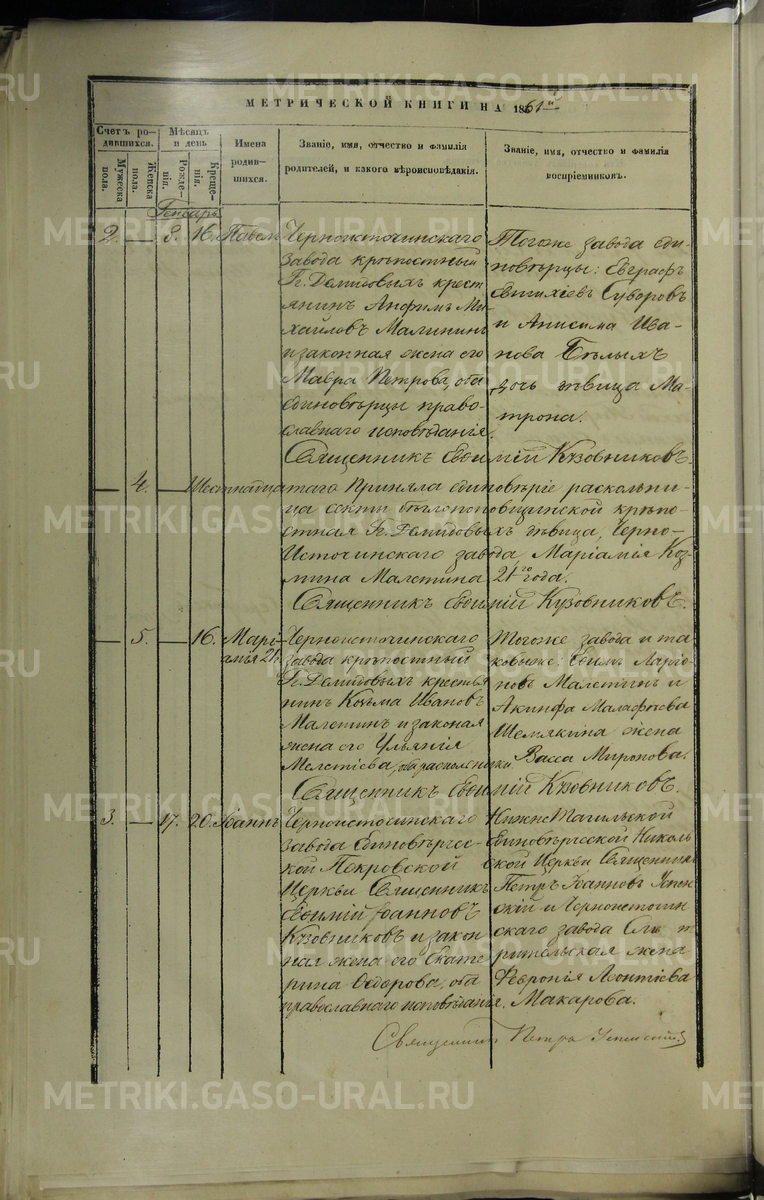 МЕТРИЧЕСКОЙ КНИГИ НА 1861й
Счетъ ро-
дившихся.
Мужеска
пола.
Женска
пола.
Мѣсяцъ
и день
Рожде-
нія.
Креще-
нія.
Имена
родив-
шихся.
Званіе, имя, отчество и фамилія
родителей, и какого вѣроисповѣданія.
Званіе, имя, отчество и фамилія
воспріемниковъ.
Генварь
2. — 8. 16. Павелъ
Черноисточинскаго
завода крѣпостный
Гг. Демидовыхъ крест
янинъ Анфимъ Ми
хайловъ Малининъ
и законная жена его
Мавра Петрова, оба
единовѣрцы право-
славнаго исповѣданія.
Тогоже завода еди
новѣрцы: Евграфъ
Суворовъ
и Анисима Ива-
нова Бѣлыхъ
дочь дѣвица Ма-
трона.
Священникъ Евѳимій Кузовниковъ.
— 4. — Шестнадцатаго Приняла единовѣріе раскольни-
ца секты бѣглопоповщинской крѣпо-
стная Гг. Демидовыхъ дѣвица, Черно-
Источинскаго завода, Маріамія Коз-
мина Малетина 21го года.
Священникъ Евѳимій Кузовниковъ.
— 5. — 16. Марі-
амія 21.
Черноисточинскаго
завода крѣпостный
Гг. Демидовыхъ крестья
нинъ Козьма Ивановъ
Малетинъ и законая
жена его Ульянія
Мелетіева, оба раскольники.
Тогоже завода и та
ковыеже: Ефимъ Ларіо
новъ Малетинъ и
Акинфа Малафѣева
Шемякина жена
Васса Миронова.
Священникъ Евѳимій Кузовниковъ.
3. — 17. 20. Іоаннъ
Черноисточинскаго
завода Единовѣрчес-
кой Покровской
Церкви Священникъ
Евѳимій Іоанновъ
Кузовниковъ и закон
ная жена его Екате
рина Ѳедорова, оба
православнаго исповѣданія.
НижнеТагильской
Единовѣрческой Николь
ской Церкви Священникъ
Петръ Іоанновъ Успен
скій и Черноисточин
скаго завода
жена
Февронія Леонтіева
Макарова.
Священникъ Петръ Успенскій
METRIKI.GASO-URAL.RU